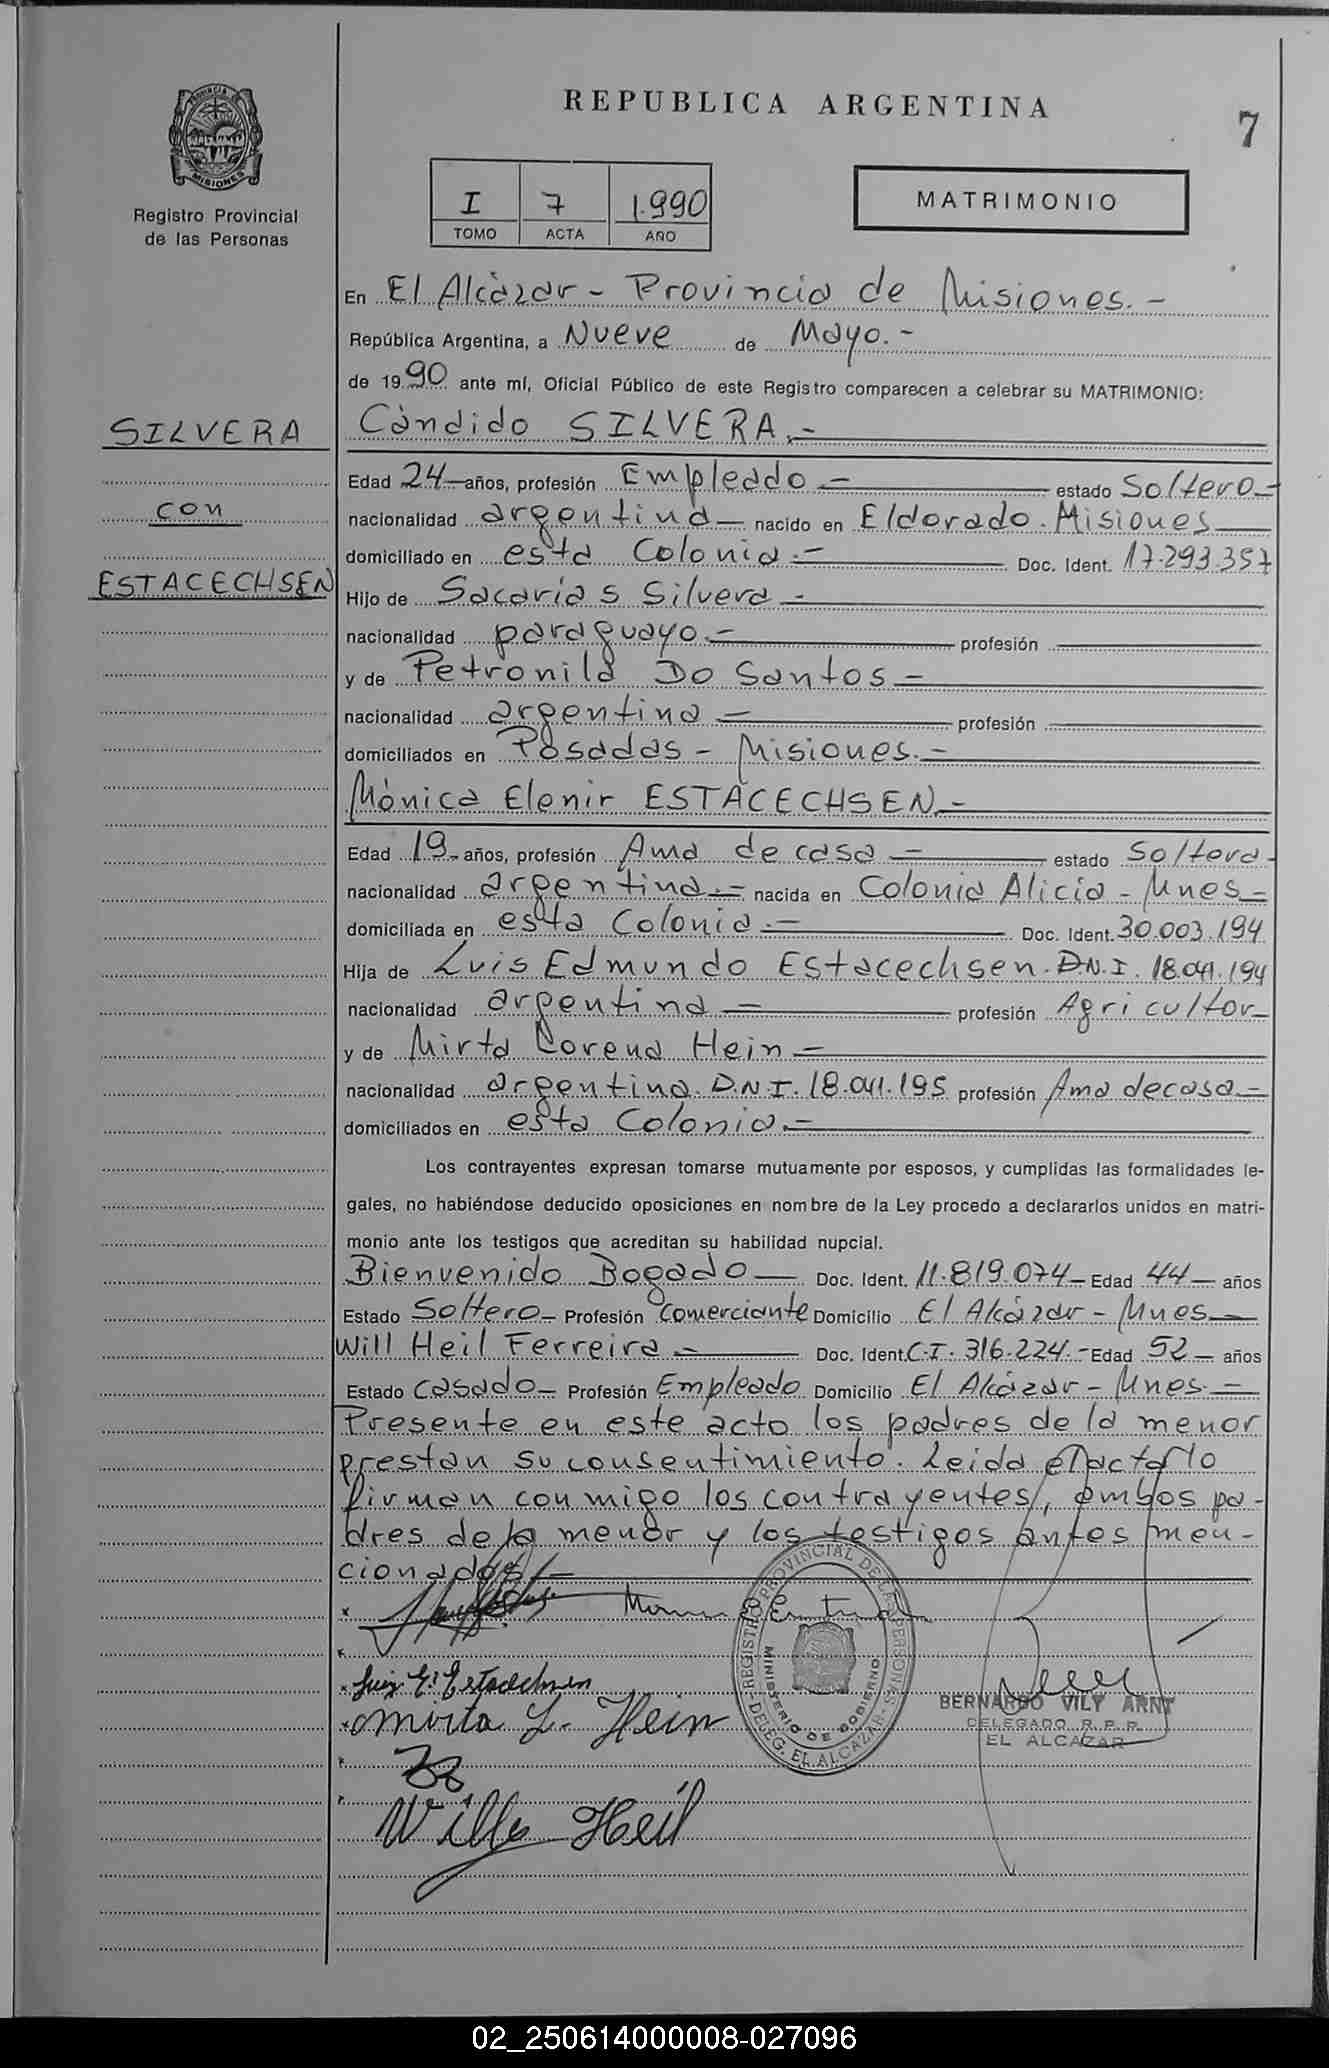 REPUBLICA ARGENTINA
7
PROVINCIA DE
MISIONES
Registro Provincial
de las Personas
I 7 1.990
TOMO ACTA AÑO
MATRIMONIO
En El Alcàzar - Provincia de Misiones. -
República Argentina, a Nueve de Mayo. -
de 1990 ante mí, Oficial Público de este Registro comparecen a celebrar su MATRIMONIO:
SILVERA
con
ESTACECHSEN
Càndido SILVERA.-
Edad 24 años, profesión Empleado.- estado Soltero-
nacionalidad argentina- nacido en Eldorado. Misiones
domiciliado en esta Colonia.- Doc. Ident. 17.293.357
Hijo de Sacarías Silvera.-
nacionalidad paraguayo.- profesión
y de Petronila Do Santos-
nacionalidad argentina- profesión
domiciliados en Posadas - Misiones.-
Mònica Elenir ESTACECHSEN.-
Edad 19 - años, profesión Ama de casa - estado Soltera-
nacionalidad argentina.- nacida en Colonia Alicia - Mnes-
domiciliada en esta Colonia.- Doc. Ident. 30.003.194
Hija de Luis Edmundo Estacechsen. D.N.I. 18.041.194
nacionalidad argentina - profesión Agricultor-
y de Mirta Lorena Hein-
nacionalidad argentina. D.N.I. 18.041.195 profesión Ama de casa-
domiciliados en esta Colonia.-
Los contrayentes expresan tomarse mutuamente por esposos, y cumplidas las formalidades le-
gales, no habiéndose deducido oposiciones en nombre de la Ley procedo a declararlos unidos en matri-
monio ante los testigos que acreditan su habilidad nupcial.
Bienvenido Bogado- Doc. Ident. 11.819.074- Edad 44- años
Estado Soltero- Profesión comerciante Domicilio El Alcázar - Mnes-
Will Heil Ferreira.- Doc. Ident. C.I. 316.224.- Edad 52- años
Estado casado- Profesión Empleado Domicilio El Alcázar - Mnes.-
Presente en este acto los padres de la menor
prestan su consentimiento. Leida el acta lo
firman conmigo los contrayentes, ambos pa-
dres de la menor y los testigos antes men-
cionados.-
Luis E. Estacechsen
Mirta L. Hein
Willy Heil
REGISTRO PROVINCIAL DE LAS PERSONAS - DELEG. EL ALCAZAR -
MINISTERIO DE GOBIERNO
BERNARDO VILY ARNT
DELEGADO R.P.P.
EL ALCAZAR
02_250614000008-027096